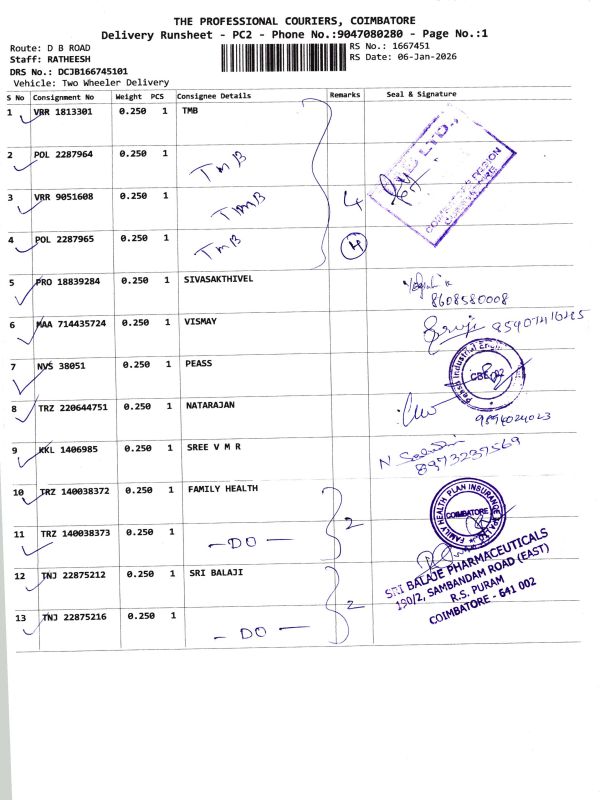 THE PROFESSIONAL COURIERS, COIMBATORE
Delivery Runsheet - PC2 - Phone No.:9047080280 - Page No.:1
Route: D B ROAD
RS No.: 1667451
Staff: RATHEESH
RS Date: 06-Jan-2026
DRS No.: DCJB166745101
Vehicle: Two Wheeler Delivery
S No Consignment No Weight PCS Consignee Details Remarks Seal & Signature
1 VRR 1813301 0.250 1 TMB
2 POL 2287964 0.250 1 TMB
3 VRR 9051608 0.250 1 TMB 4
4 POL 2287965 0.250 1 TMB 4
COIMBATORE
5 PRO 18839284 0.250 1 SIVASAKTHIVEL
8608580008
6 MAA 714435724 0.250 1 VISMAY
7 NVS 38051 0.250 1 PEASS
Peass Industrial Engine
8 TRZ 220644751 0.250 1 NATARAJAN
9894024023
9 KKL 1406985 0.250 1 SREE V M R
8973237569
10 TRZ 140038372 0.250 1 FAMILY HEALTH 2
FAMILY HEALTH PLAN INSURANCE
COIMBATORE
11 TRZ 140038373 0.250 1 - DO -
12 TNJ 22875212 0.250 1 SRI BALAJI 2
SRI BALAJE PHARMACEUTICALS
190/2, SAMBANDAM ROAD (EAST)
R.S. PURAM
COIMBATORE - 641 002
13 TNJ 22875216 0.250 1 - DO -